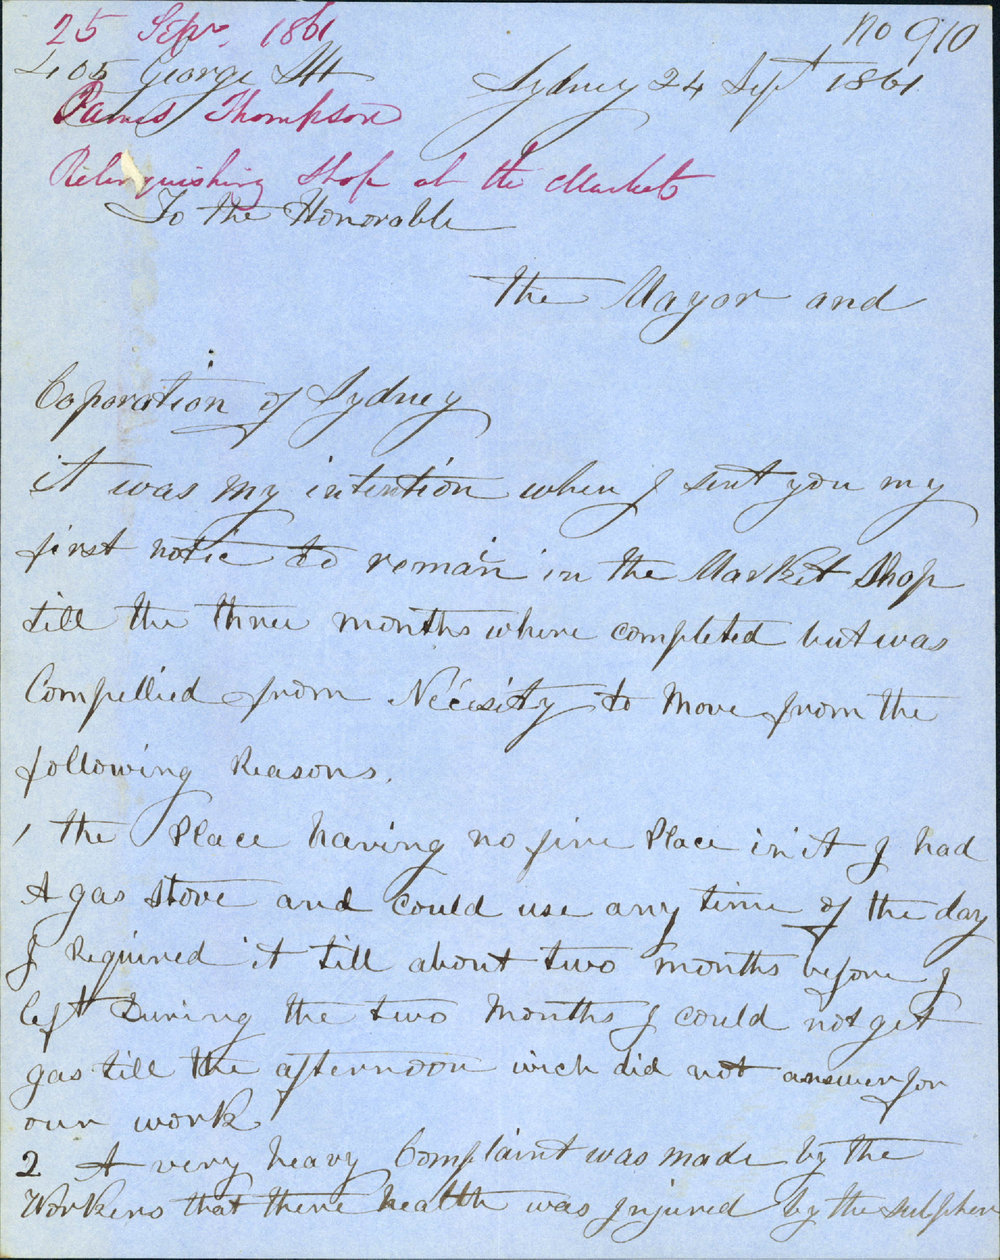 25 Sepr. 1861
no 910
405 George Stt
Sydney 24 Sept 1861
James Thompson
Relinquishing Shop at the Markets
To the Honorable
the Mayor and
Coporation of Sydney
it was my intention when I sent you my
first notice to remain in the Market Shop
till the three months where completed but was
Compellied from Necesity to Move from the
following Reasons.
1 the Place having no fire Place in it I had
A gas Stove and could use any time of the day
I Required it till about two months before I
left During the two Months I could not get
gas till the afternoon wich did not answer for
our work
2 A very heavy Complaint was made by the
Workers that there health was Injured by the sulpher